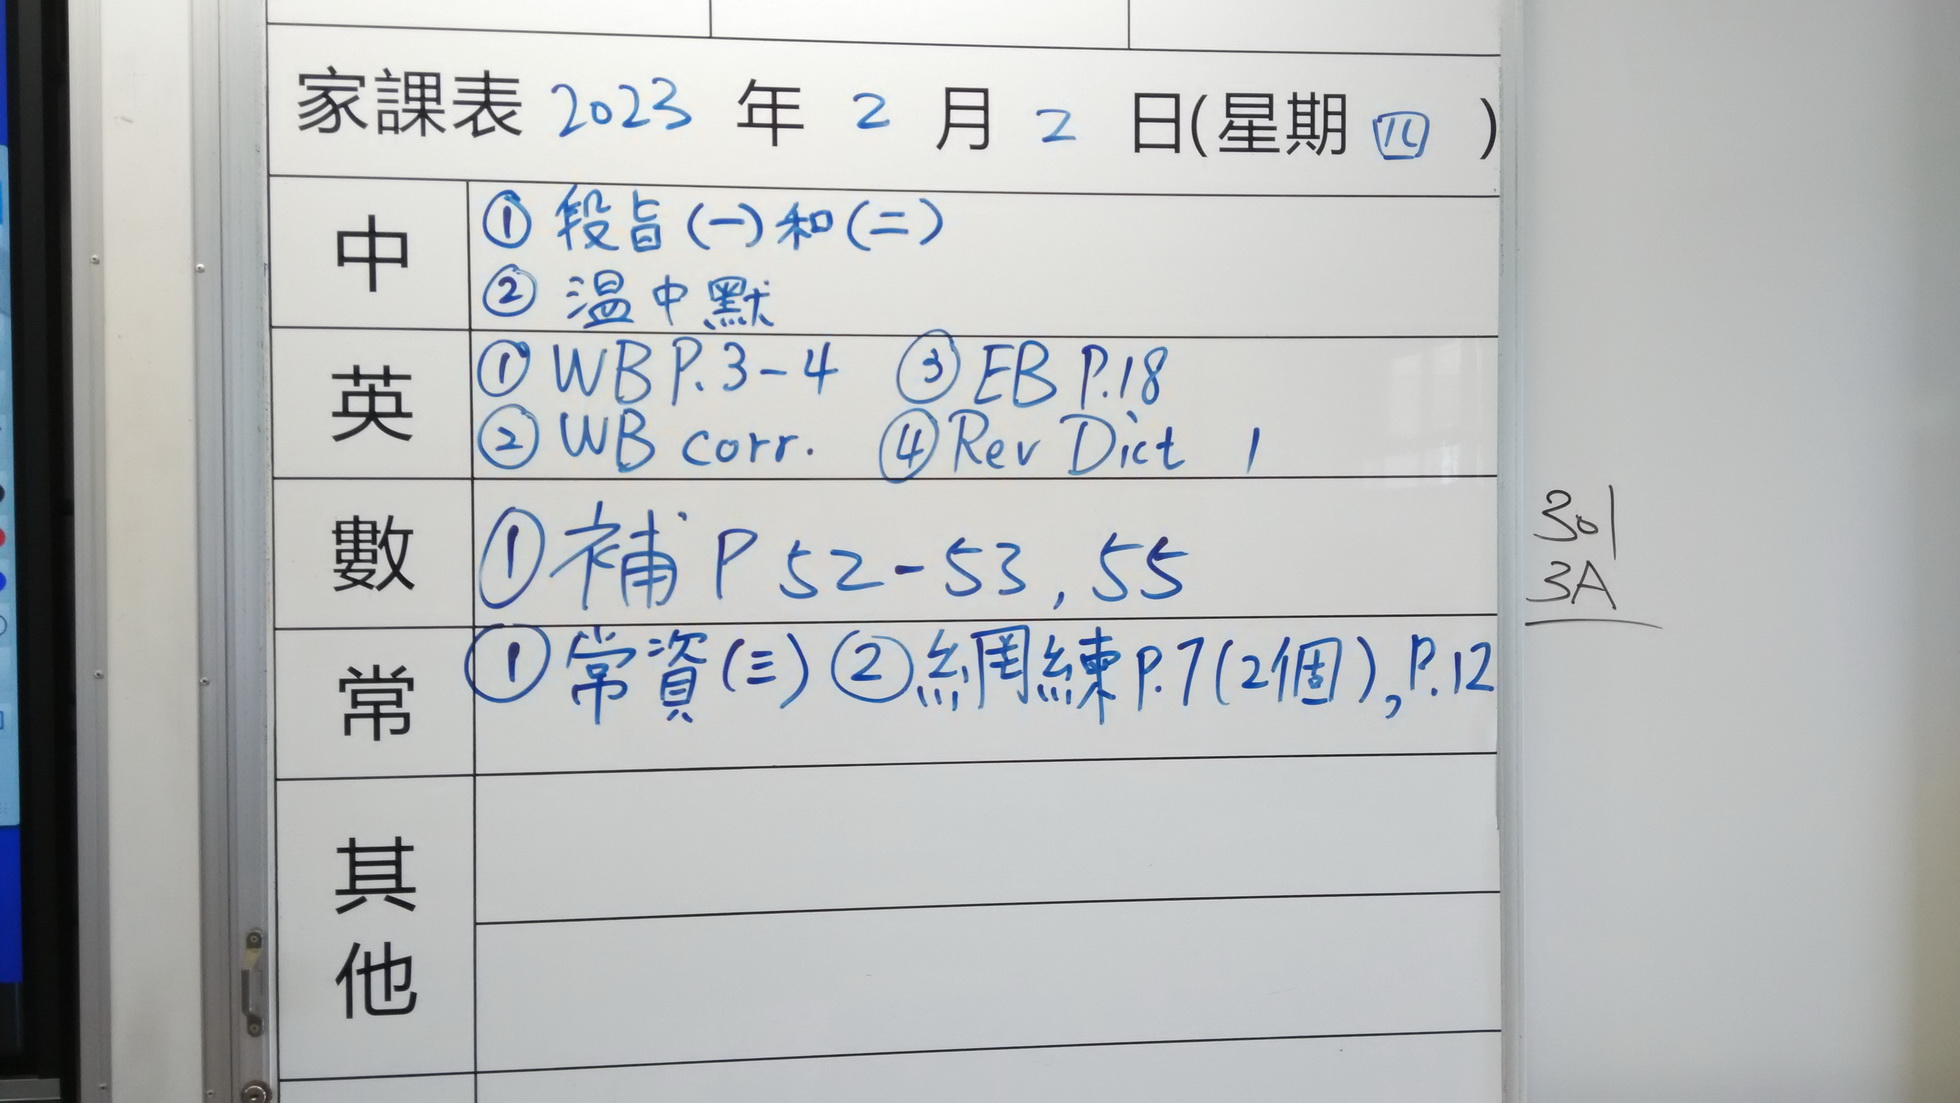 家課表 2023 年 2 月 2 日(星期 四 )
中
① 段旨(一)和(二)
② 溫中默
英
① WB P.3-4 ③ EB P.18
② WB corr. ④ Rev Dict 1
數
① 補 P 52-53, 55
常
① 常資(三) ② 網練 P.7(2個), P.12
其他
301
3A